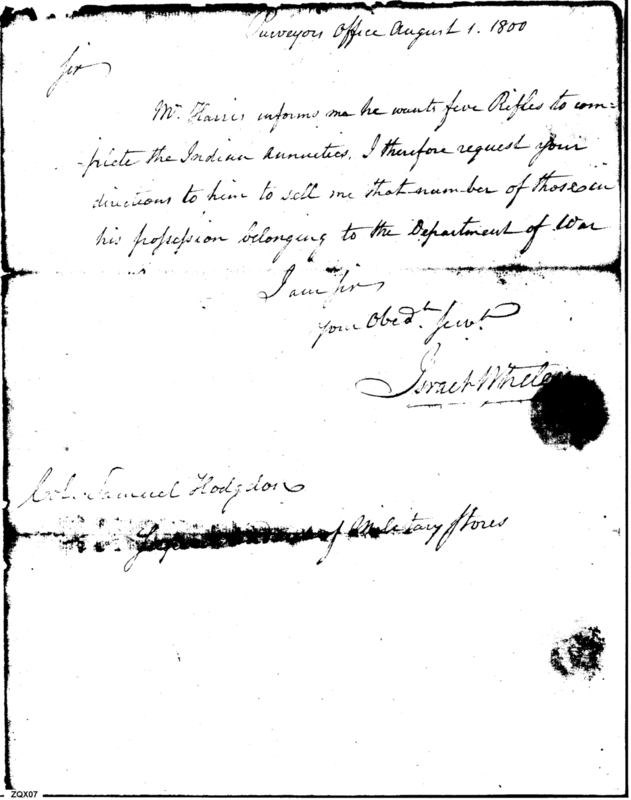 Purveyors Office August 1. 1800
Sir
Mr. Harris informs me he wants five Rifles to com=
-plete the Indian Annuities, I therefore request your
directions to him to sell me that number of those in
his possession belonging to the Department of War
I am Sir
your Obedt. Servt.
Israel Whelen
Col. Samuel Hodgdon
of Military Stores
ZQX07